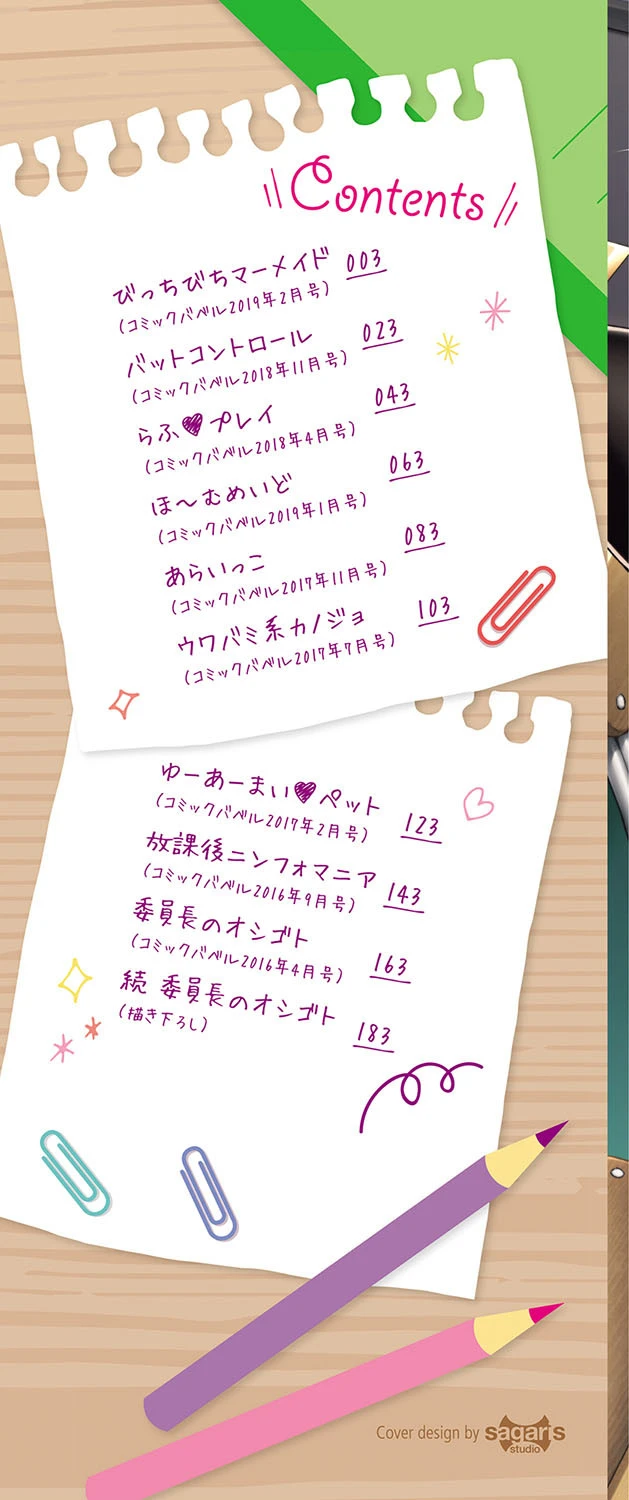 Contents
びっちびちマーメイド 003
(コミックバベル2019年2月号)
バットコントロール 023
(コミックバベル2018年11月号)
らふ♥プレイ 043
(コミックバベル2018年4月号)
ほ〜むめいど 063
(コミックバベル2019年1月号)
あらいっこ 083
(コミックバベル2017年11月号)
ウワバミ系カノジョ 103
(コミックバベル2017年7月号)
ゆーあーまい♥ペット 123
(コミックバベル2017年2月号)
放課後ニンフォマニア 143
(コミックバベル2016年9月号)
委員長のオシゴト 163
(コミックバベル2016年4月号)
続 委員長のオシゴト 183
(描き下ろし)
Cover design by sagaris studio